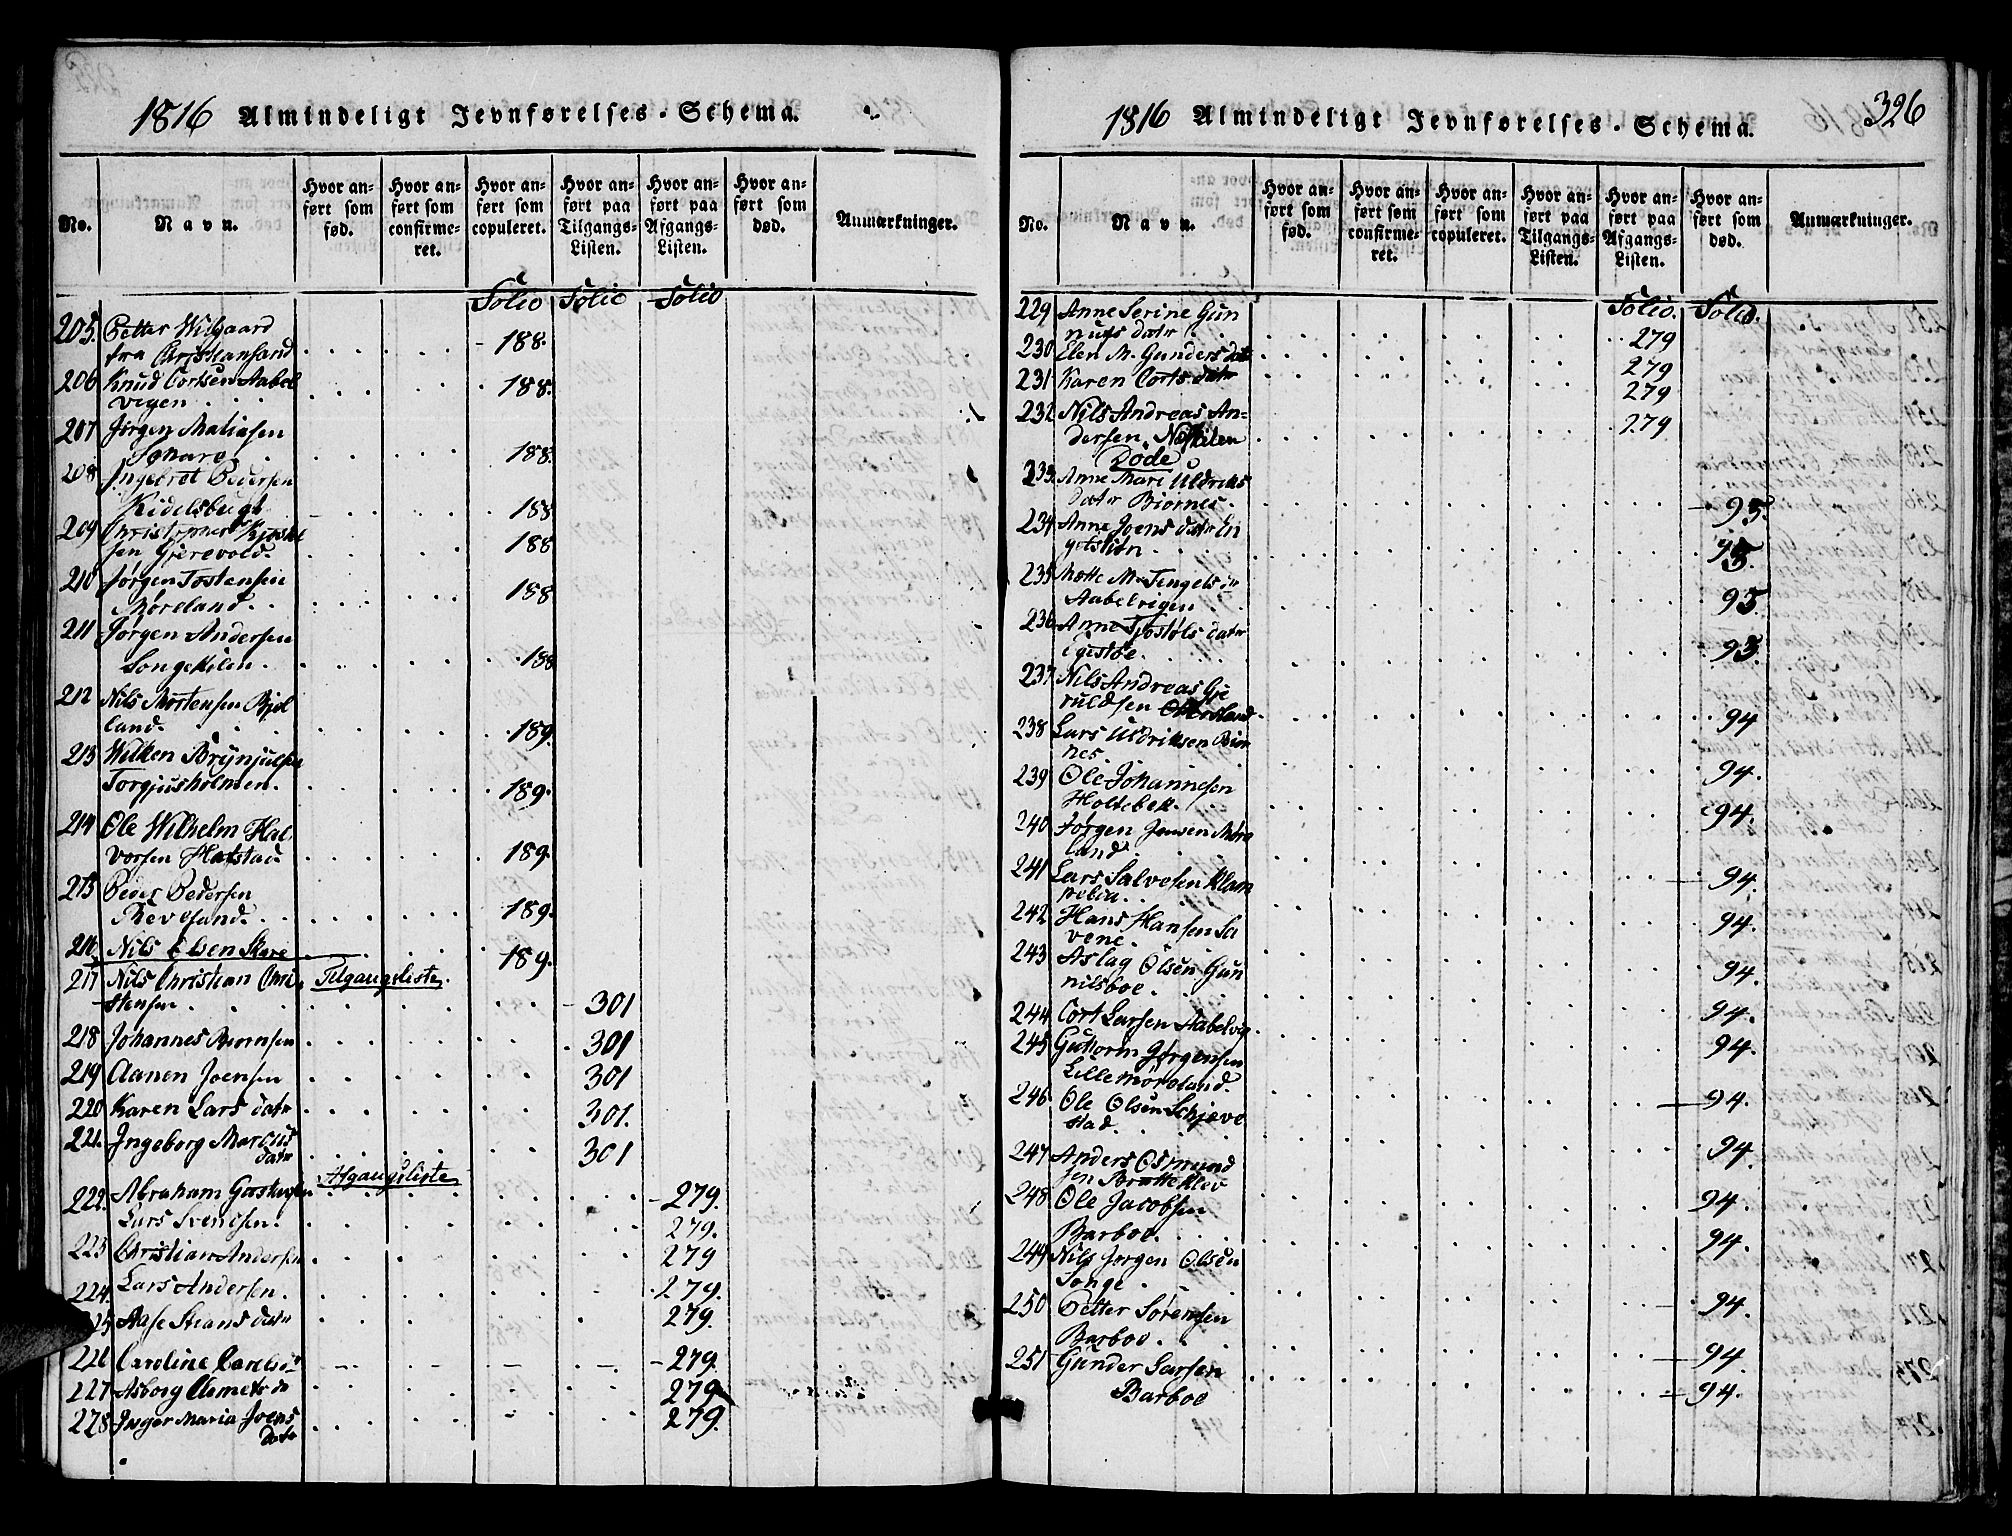 1816 Almindeligt Jevnførelses-Schema.
No. Navn. Hvor anført som fød. Hvor anført som confirmeret. Hvor anført som copuleret. Hvor anført paa Tilgangs-Listen. Hvor anført paa Afgangs-Listen. Hvor anført som død. Anmærkninger.
Folio Folio Folio
205. Petter Wilgaard
fra Christiansand 188.
206 Knud Cortsen Aabel
vigen 188.
207 Jørgen Matiasen
188.
208 Ingebrot Pedersen
Kidelsbugt 188
209 Christopher
sen Gjerevold. 188
210 Jørgen Tostensen
Møreland. 188
211 Jørgen Andersen
Songekilen. 188
212 Nils Mortensen Bjel
land. 189.
213 Wilken Brynjulfsen
Torgjusholmen. 189.
214 Ole Wilhelm Hal
vorsen Hafstad 189.
215 Peder Pedersen
Revesand. 189.
216. Nils Olsen Skare 189.
Tilgangsliste
217 Nils Christian Chri
stensen 301
218 Johannes Biørnsen 301
219 Aanen Joensen 301
220 Karen Lars datr 301.
221. Ingeborg Marcus
datr 301
Afgangsliste
222. Abraham Gostavsen 279.
Lars Svendsen. 279.
223 Christian Andersen 279
224. Lars Andersen. 279.
Aase datr 279.
226 Caroline 279.
227 Asborg Clemets 279
228 Inger Maria Joens
datr 279.
1816 Almindeligt Jevnførelses-Schema. 326
No. Navn. Hvor anført som fød. Hvor anført som confirmeret. Hvor anført som copuleret. Hvor anført paa Tilgangs-Listen. Hvor anført paa Afgangs-Listen. Hvor anført som død. Anmærkninger.
Folio. Folio.
229 Anne Serine Gun
nufs datr 279
230 Elen M. Gunders datr 279
231 Karen Corts datr 279
232 Nils Andreas An-
dersen Neskilen 279
Døde
233. Anne Mari Uldriks
datr Biornes. 93.
234 Anne Joens datr En
93.
235 Mette M. Tengels dr
Aabelvigen 93
236 Anne Tjostøls datr
93.
237 Nils Andreas Gje
ruldsen 94
238 Lars Uldriksen Bior
nes. 94.
239 Ole Johannesen
Holtebek. 94.
240 Jørgen Jensen Møre
land 94.
241 Lars Salvesen 94.
242 Hans Hansen Sa
vene. 94.
243 Aslag Olsen Gun
nilsboe. 94.
244 Cort Larsen Aabelvig 94.
245 Guttorm Jørgensen
Lille Møreland. 94.
246 Ole Olsen Schjeve
stad. 94.
247 Anders Osmund
sen Bratteklev 94.
248 Ole Jacobsen
Barboe. 94.
249 Nils Jørgen Olsen
Songe. 94.
250 Petter Sørensen
Barboe. 94.
251 Gunder Larsen
Barboe 94.